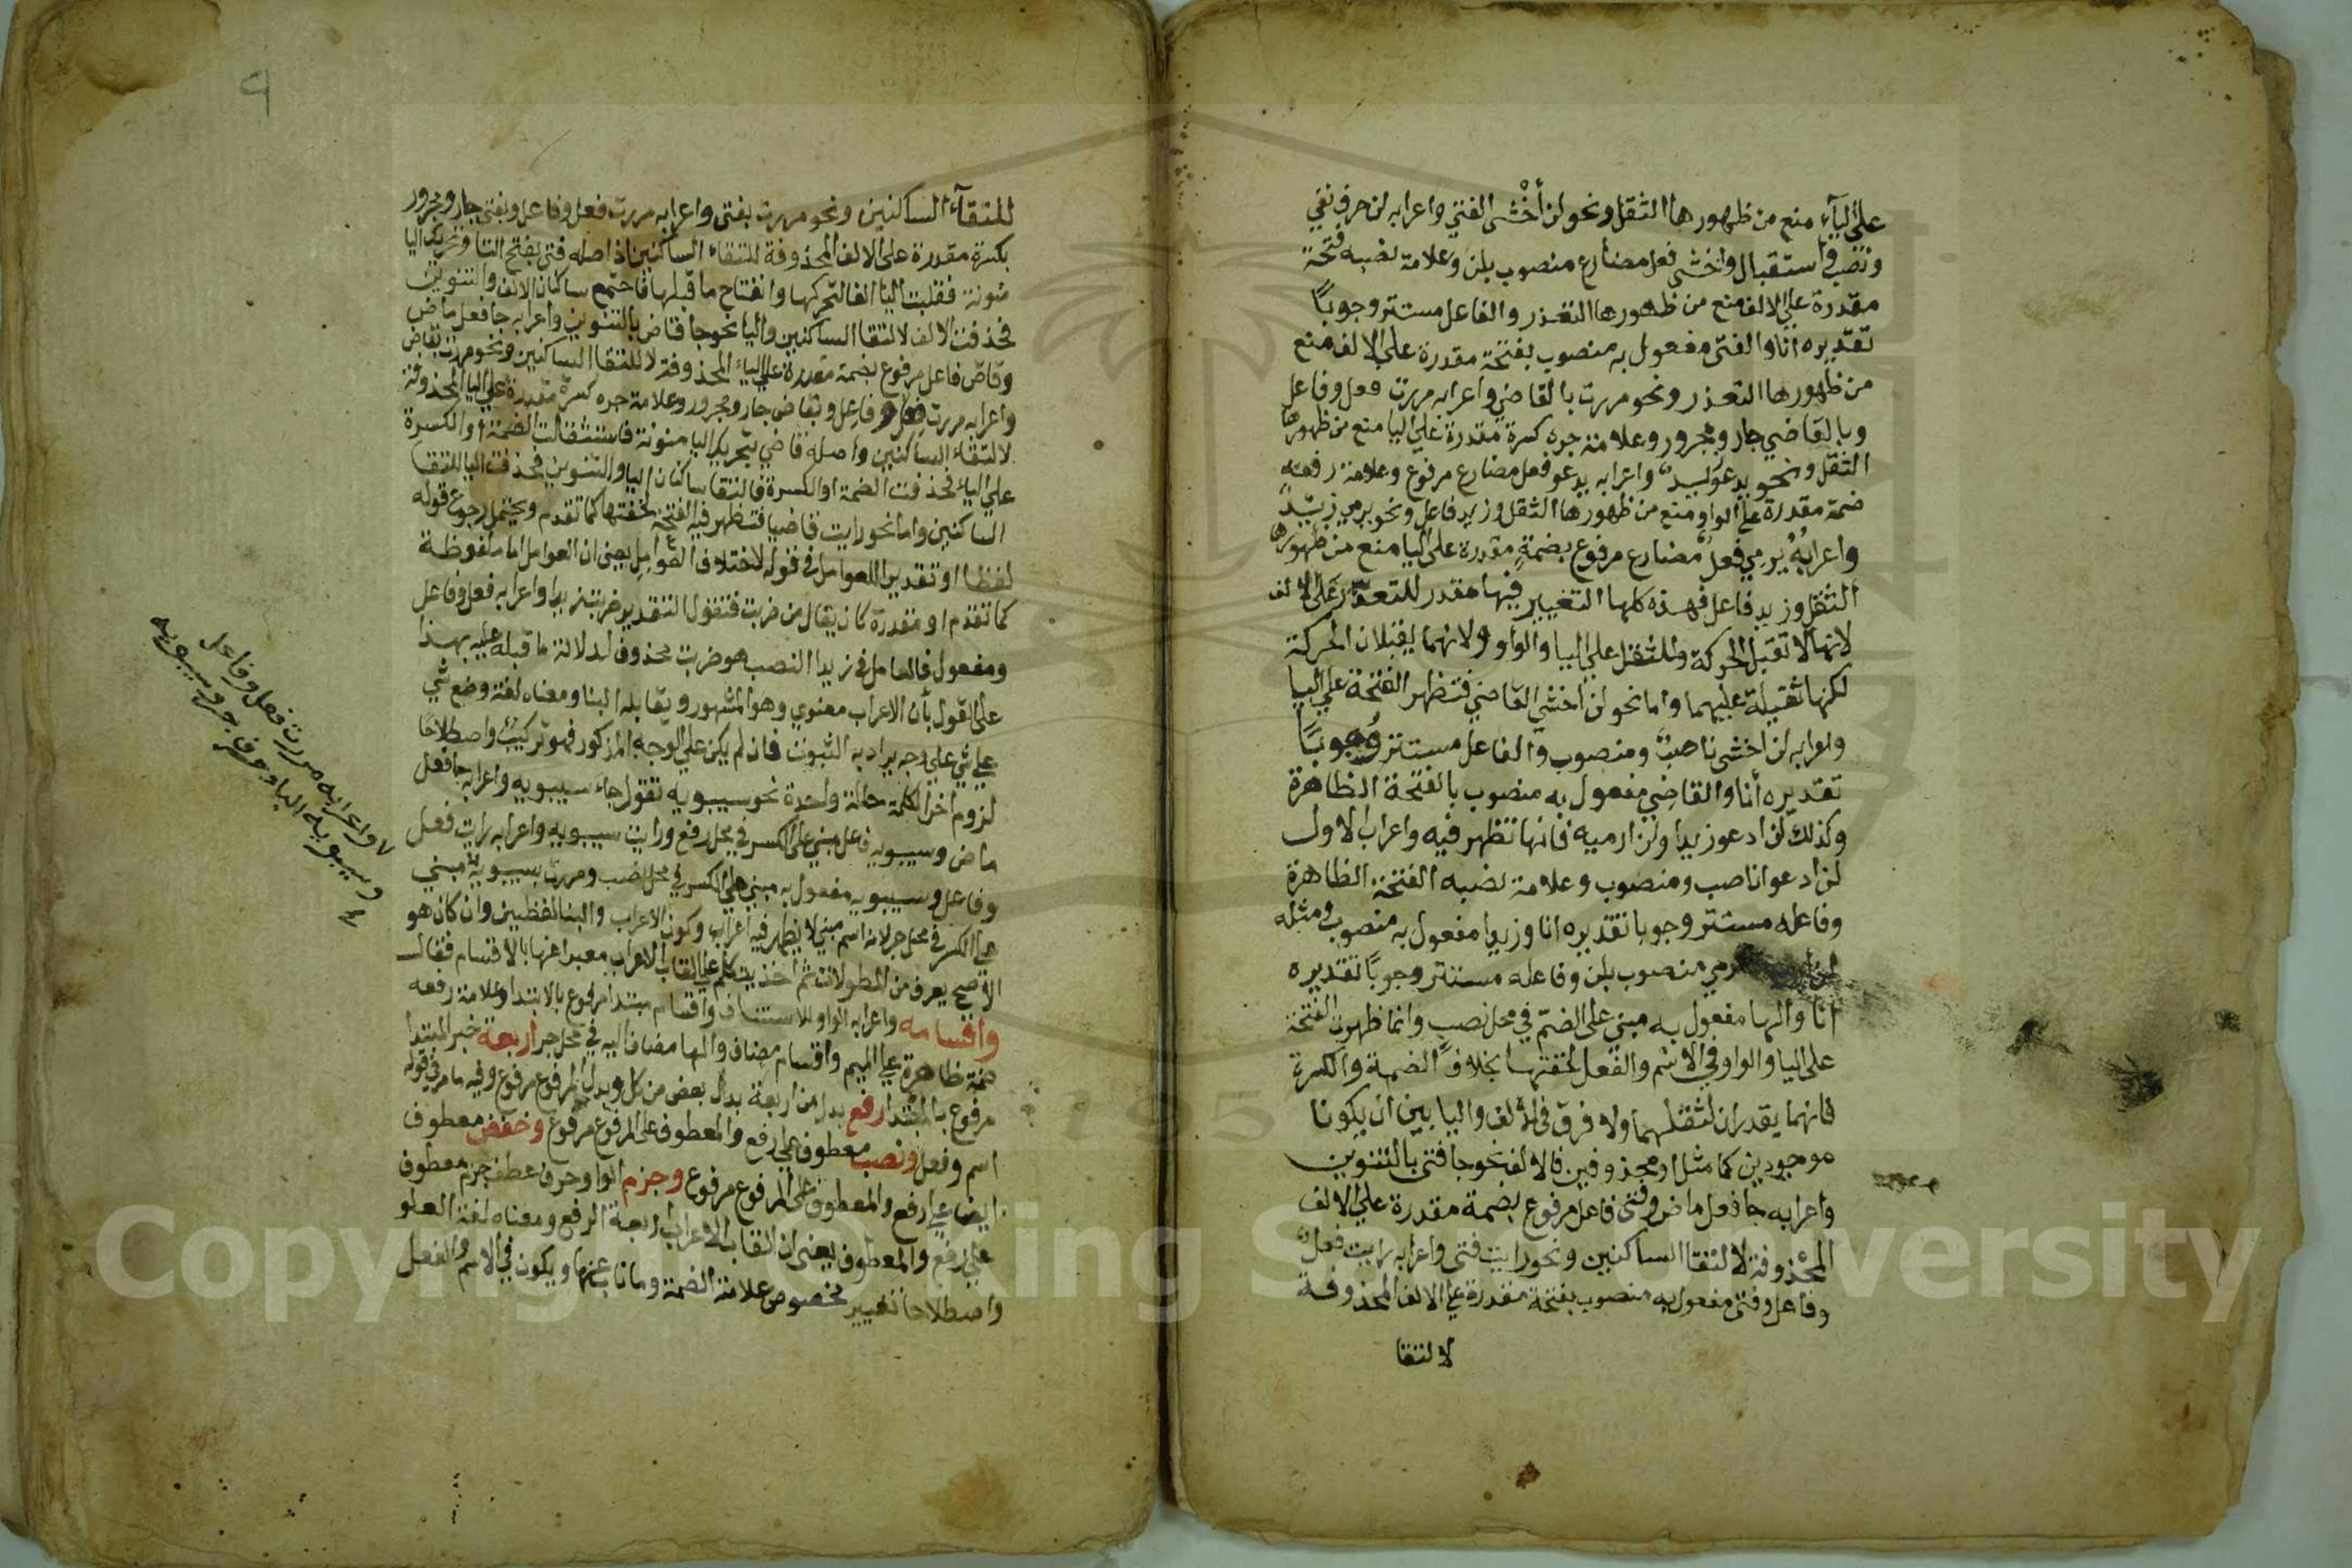 على اليآء منع من ظهورها الثقل ونحو لن أخْشى الفتى واعرابه لن حرف نفي
ونصب واستقبال واخشى فعل مضارع منصوب بلن وعلامة نصبه فتحة
مقدرة على الالف منع من ظهورها التعذر والفاعل مستتر وجوبًا
تقديره انا والفتى مفعول به منصوب بفتحة مقدرة على الالف منع
من ظهورها التعذر ونحو مررت بالقاضي واعرابه مررت فعل وفاعل
وبالقاضي جار ومجرور وعلامة جره كسرة مقدرة على اليا منع من ظهورها
الثقل ونحو يدعو زيد واعرابه يدعو فعل مضارع مرفوع وعلامة رفعه
ضمة مقدرة على الواو منع من ظهورها الثقل وزيد فاعل ونحو يرمي زيد
واعرابه يرمي فعل مضارع مرفوع بضمة مقدرة على اليا منع من ظهورها
الثقل وزيد فاعل فهذه كلها التغيير فيها مقدر للتعذر على الالف
لانها لا تقبل الحركة وللثقل على اليا والواو ولانهما يقبلان الحركة
لكنها ثقيلة عليهما واما نحو لن اخشى القاضي فتظهر الفتحة على اليا
واعرابه لن اخشى ناصب ومنصوب والفاعل مستتر وُجوبًا
تقديره أنا والقاضي مفعول به منصوب بالفتحة الظاهرة
وكذلك لن ادعو زيدا ولن ارميه فانها تظهر فيه واعراب الاول
لن ادعو ناصب ومنصوب وعلامة نصبه الفتحة الظاهرة
وفاعله مستتر وجوبا تقديره انا وزيدا مفعول به منصوب ومثله
لن ارمي منصوب بلن وفاعله مستتر وجوبًا تقديره
انا والها مفعول به مبني على الضمّ في محل نصب وانما ظهرت الفتحة
على اليا والواو في الاسم والفعل لخفتها بخلاف الضمة والكسرة
فانهما يقدران لثقلهما ولا فرق في الالف واليا بين ان يكونا
موجودين كما مثل او محذوفين فالالف نحو جا فتى بالتنوين
واعرابه جا فعل ماض وفتى فاعل مرفوع بضمة مقدرة على الالف
المحذوفة لالتقا الساكنين ونحو رايت فتى واعرابه رايت فعل
وفاعل وفتى مفعول به منصوب بفتحة مقدرة على الالف المحذوفة
لالتقا
٩
للتقآء الساكنين ونحو مررت بفتى واعرابه مررت فعل وفاعل وبفتى جار ومجرور
بكسرة مقدرة على الالف المحذوفة للتقاء الساكنين اذ اصله فتى بفتح التا وتحريك اليا
منونة فقلبت اليا الفا لتحركها وانفتاح ما قبلها فاجتمع ساكنان الالف والتنوين
فحذفت الالف لالتقا الساكنين واليا نحو جا قاض بالتنوين واعرابه جا فعل ماض
وقاض فاعل مرفوع بضمة مقدرة على الياء المحذوفة لالتقا الساكنين ونحو مررت بقاض
واعرابه مررت فعل وفاعل وبقاض جار ومجرور وعلامة جره كسرة مقدرة على اليا المحذوفة
لالتقاء الساكنين واصله قاضي بتحريك اليا منونة فاستثقلت الضمة او الكسرة
على الياء فحذفت الضمة او الكسرة فالتقا ساكنان اليا والتنوين فحذفت اليا للتقا
الساكنين واما نحو رايت قاضيا فتظهر فيه الفتحة لخفتها كما تقدم ويحتمل رجوع قوله
لفظا او تقديرا للعوامل في قوله لاختلاف العوامل يعني ان العوامل اما ملفوظة
كما تقدم او مقدرة كان يقال من ضربت فتقول التقدير ضربت زيدا واعرابه فعل وفاعل
ومفعول فالعامل في زيدا النصب هو ضربت محذوف لدلالة ما قبله عليه بهذا
على القول بأن الاعراب معنوي وهو المشهور ويقابله البنا ومعناه لغة وضع شي
على شي على وجه يراد به الثبوت فان لم يكن على الوجه المذكور فهو تركيب واصطلاحا
لزوم اخر الكلمة حالة واحدة نحو سيبويه تقول جاء سيبويه واعرابه جا فعل
ماض وسيبويه فاعل مبني على الكسر في محل رفع ورايت سيبويه واعرابه رايت فعل
وفاعل وسيبويه مفعول به مبني على الكسر في محل نصب ومررت بسيبويه مبني
على الكسر في محل جر لانه اسم مبني لا يظهر فيه اعراب وكون الاعراب والبنا لفظيين وان كان هو
الاصح يعرف من المطولات ثم اخذ يتكلم على القاب الاعراب معبرا عنها بالاقسام فقال
واقسامه واعرابه الواو للاستئناف واقسام مبتدا مرفوع بالابتدا وعلامة رفعه
ضمة ظاهرة على الميم واقسام مضاف والها مضاف اليه في محل جر اربعة خبر المبتدا
مرفوع بالمبتدا رفع بدل من اربعة بدل بعض من كل وبدل المرفوع مرفوع وفيه ما مر في قوله
اسم وفعل ونصب معطوف على رفع والمعطوف على المرفوع مرفوع وخفض معطوف
ايضا على رفع والمعطوف على المرفوع مرفوع وجزم الواو حرف عطف جزم معطوف
على رفع والمعطوف يعني ان القاب الاعراب اربعة الرفع ومعناه لغة العلو
واصطلاحا تغيير مخصوص علامة الضمة وما ناب عنها ويكون في الاسم والفعل
واعرابه مررت فعل وفاعل
وسيبويه الباء حرف جر وسيبويه
Copyright © King Saud University